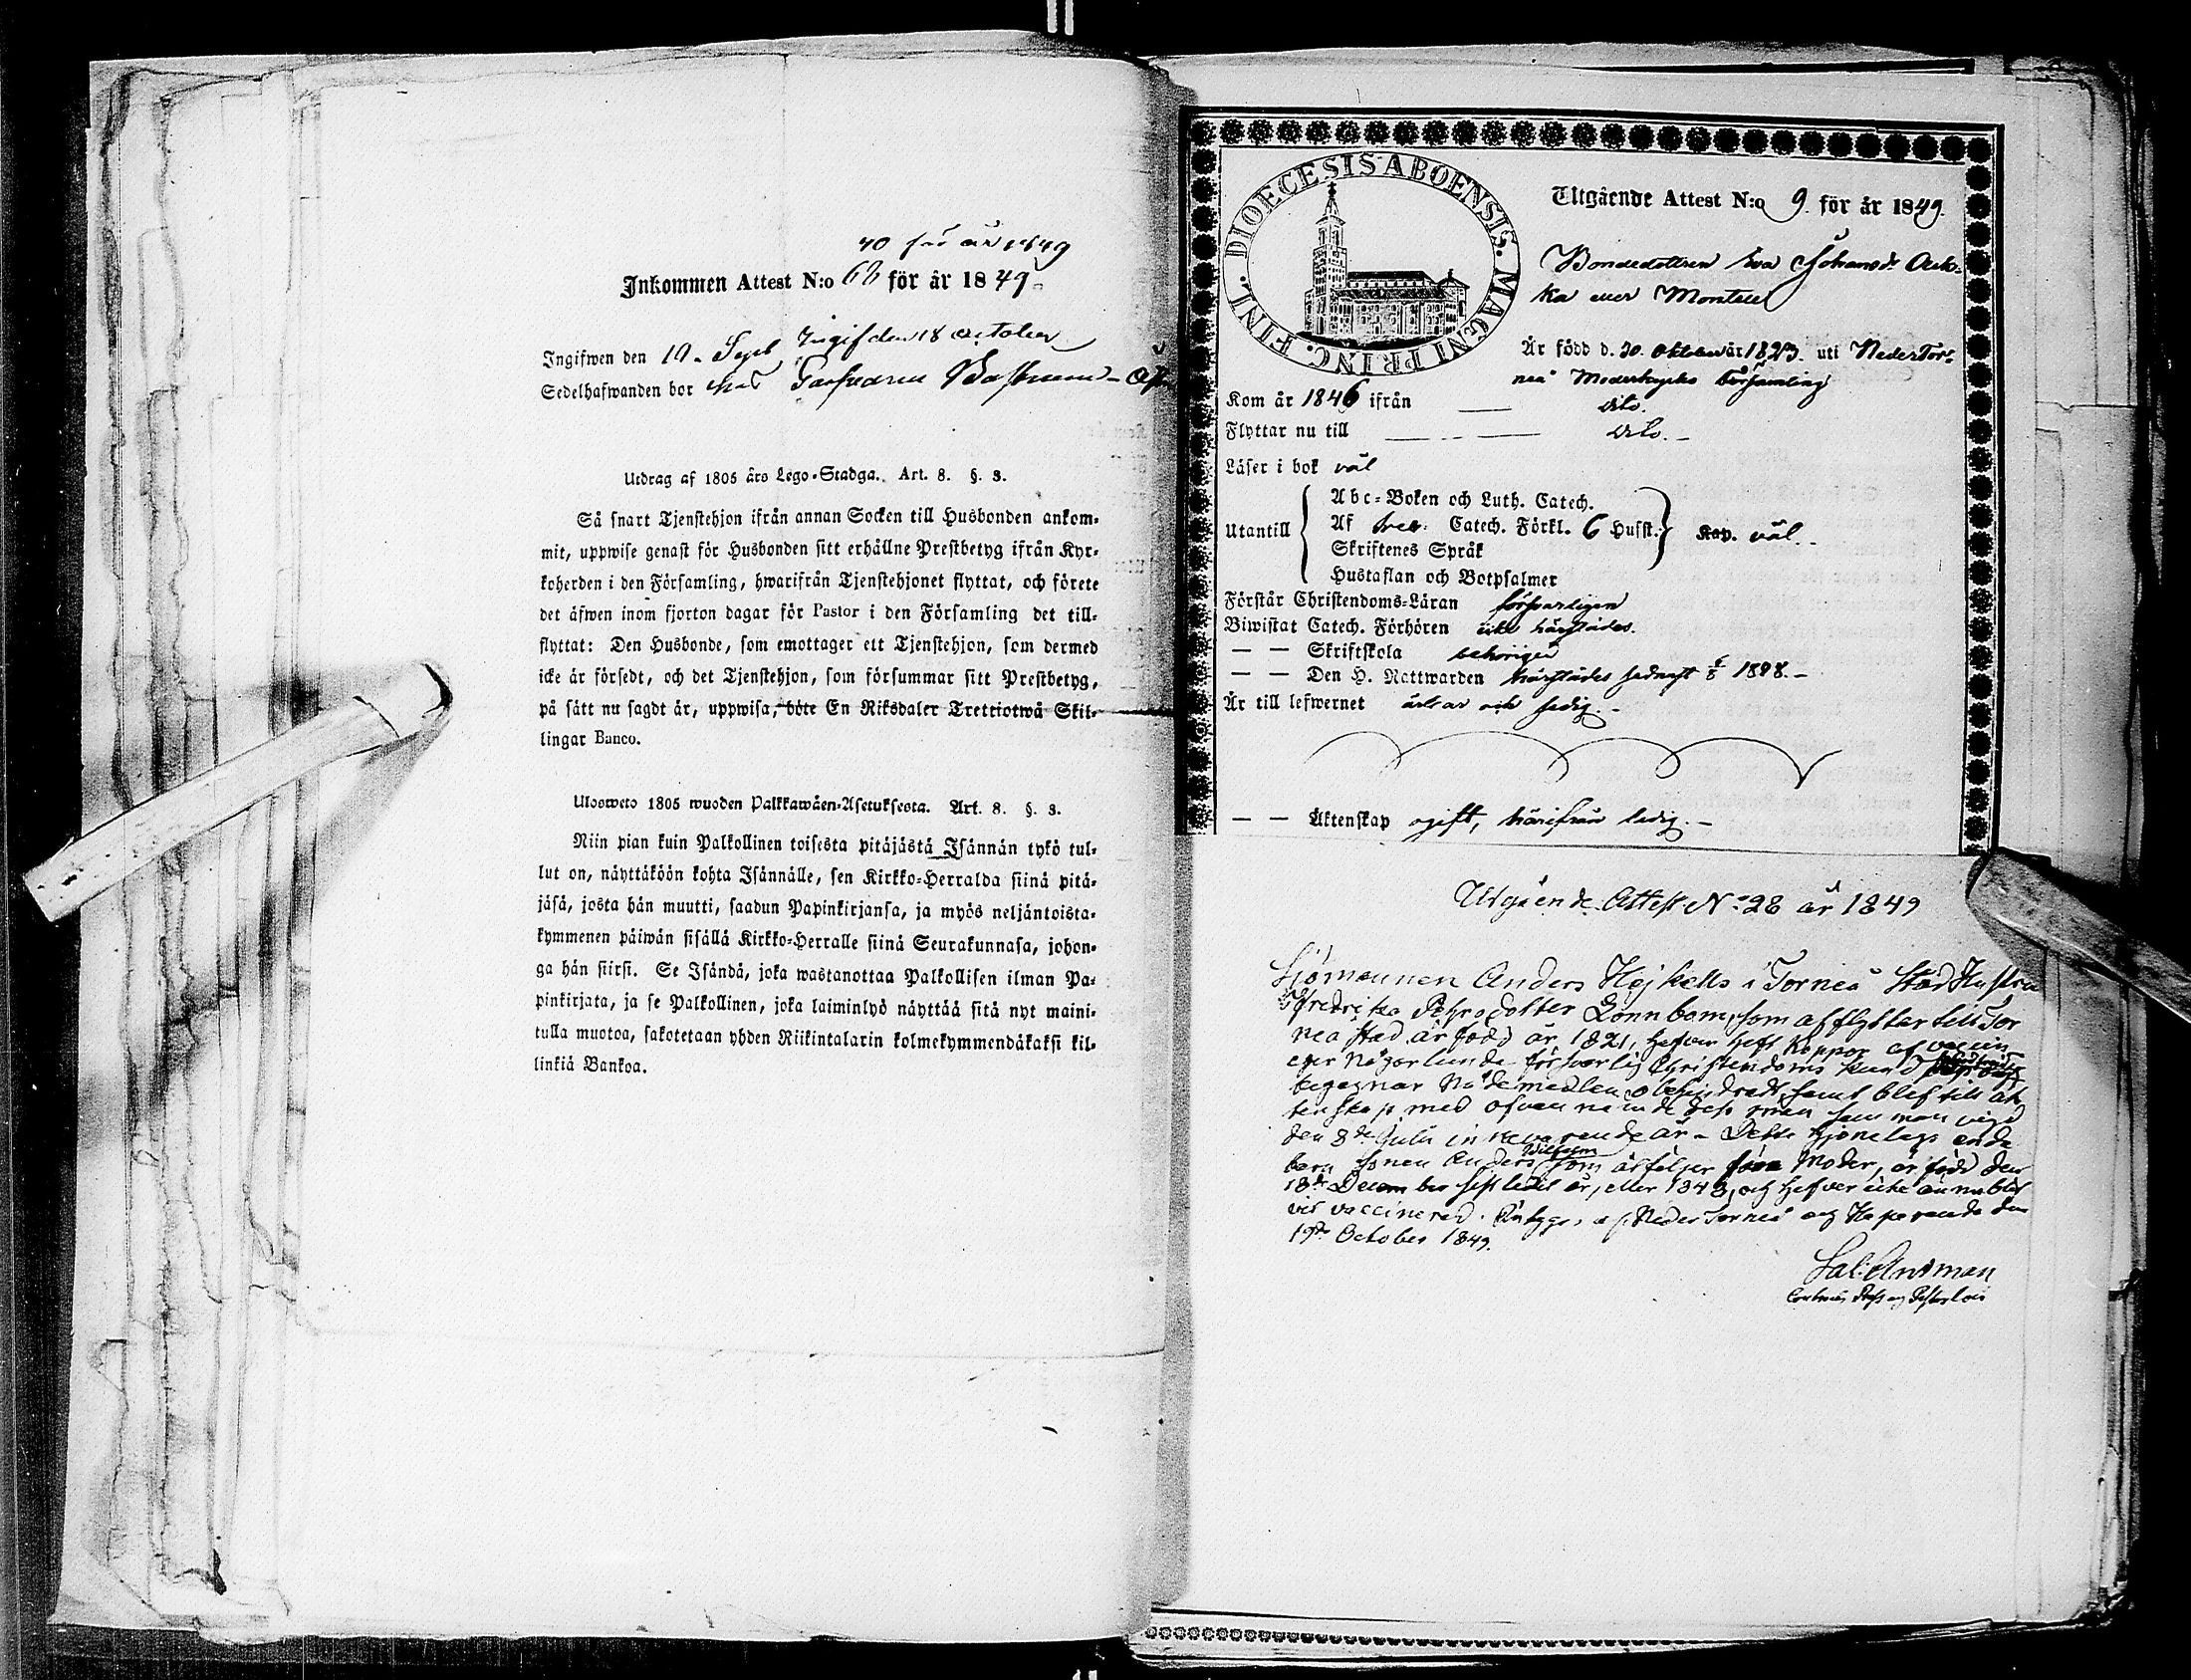 40 för år 1849
Inkommen Attest N:o 68 för år 1849.
Ingifwen den 10. Sept Ingif den 18 October
Sedelhafwanden bor hos
Utdrag af 1805 års Lego-Stadga. Art. 8. §. 3.
Så snart Tjenstehjon ifrån annan Socken till Husbonden ankom-
mit, uppwise genast för Husbonden sitt erhållne Prestbetyg ifrån Kyr-
koherden i den Församling, hwarifrån Tjenstehjonet flyttat, och förete
det äfwen inom fjorton dagar för Pastor i den Församling det till-
flyttat: Den Husbonde, som emottager ett Tjenstehjon, som dermed
icke är försedt, och det Tjenstehjon, som försummar sitt Prestbetyg,
på sätt nu sagdt är, uppwisa, böte En Riksdaler Trettiotwå Skil-
lingar Banco.
Ulosweto 1805 wuoden Palkkawäen-Asetuksesta. Art. 8. §. 3.
Niin pian kuin Palkollinen toisesta pitäjästä Isännän tykö tul-
lut on, näyttäköön kohta Isännälle, sen Kirkko-Herralda siinä pitä-
jäsä, josta hän muutti, saadun Papinkirjansa, ja myös neljäntoista-
kymmenen päiwän sisällä Kirkko-Herralle siinä Seurakunnasa, johon-
ga hän siirsi. Se Isändä, joka wastanottaa Palkollisen ilman Pa-
pinkirjata, ja se Palkollinen, joka laiminlyö näyttää sitä nyt maini-
tulla muotoa, sakotetaan yhden Riikintalarin kolmekymmendäkaksi kil-
linkiä Bankoa.
DIOECESIS ABOENSIS. MAGNI PRINC. FINL.
Utgående Attest N:o 9. för år 1849.
Bondedottren Eva Johansd:r
ka eller Montell
Är född d. 30. Oktober år 1823. uti NederTor-
neå Moderkyrko församling
Kom år 1846 ifrån dito.
Flyttar nu till dito. –
Läser i bok väl
Utantill
Abc-Boken och Luth. Catech.
Af Sveb. Catech. Förkl. 6 Husst.
Skriftenes Språk
Hustaflan och Botpsalmer
Kap. väl.
Förstår Christendoms-Läran försvarligen
Biwistat Catech. Förhören icke härstädes.
— — Skriftskola behörigen
— — Den H. Nattwarden härstädes sednast 1848. –
Är till lefwernet ärbar och sedig. –
— — Äktenskap ogift, härifrån ledig. –
Utgående Attest N:o 28 år 1849
Sjömannen Anders Hejkells i Torneå Stad Hustru
Fredrika Pehrsdotter Lönnbom, som afflyttar till Tor
neå stad, är född år 1821, hafver haft Koppor af vaccin
eger någorlunda försvarlig Christendoms kund
begagnar Nådemedlen obehindradt, samt blef till äk
tenskap med ofvannemnde dess man sammanvigd
den 8de Julii innevarande år – Detta hjonelags enda
barn sonen Anders Wilhelm som åtföljer sin Moder, är född den
18de December sistledit år, eller 1848, och hafver icke ännu blif
vit vaccinerad. Intygas af Neder Torneå och Haparanda den
19de October 1849.
Sal: Antman